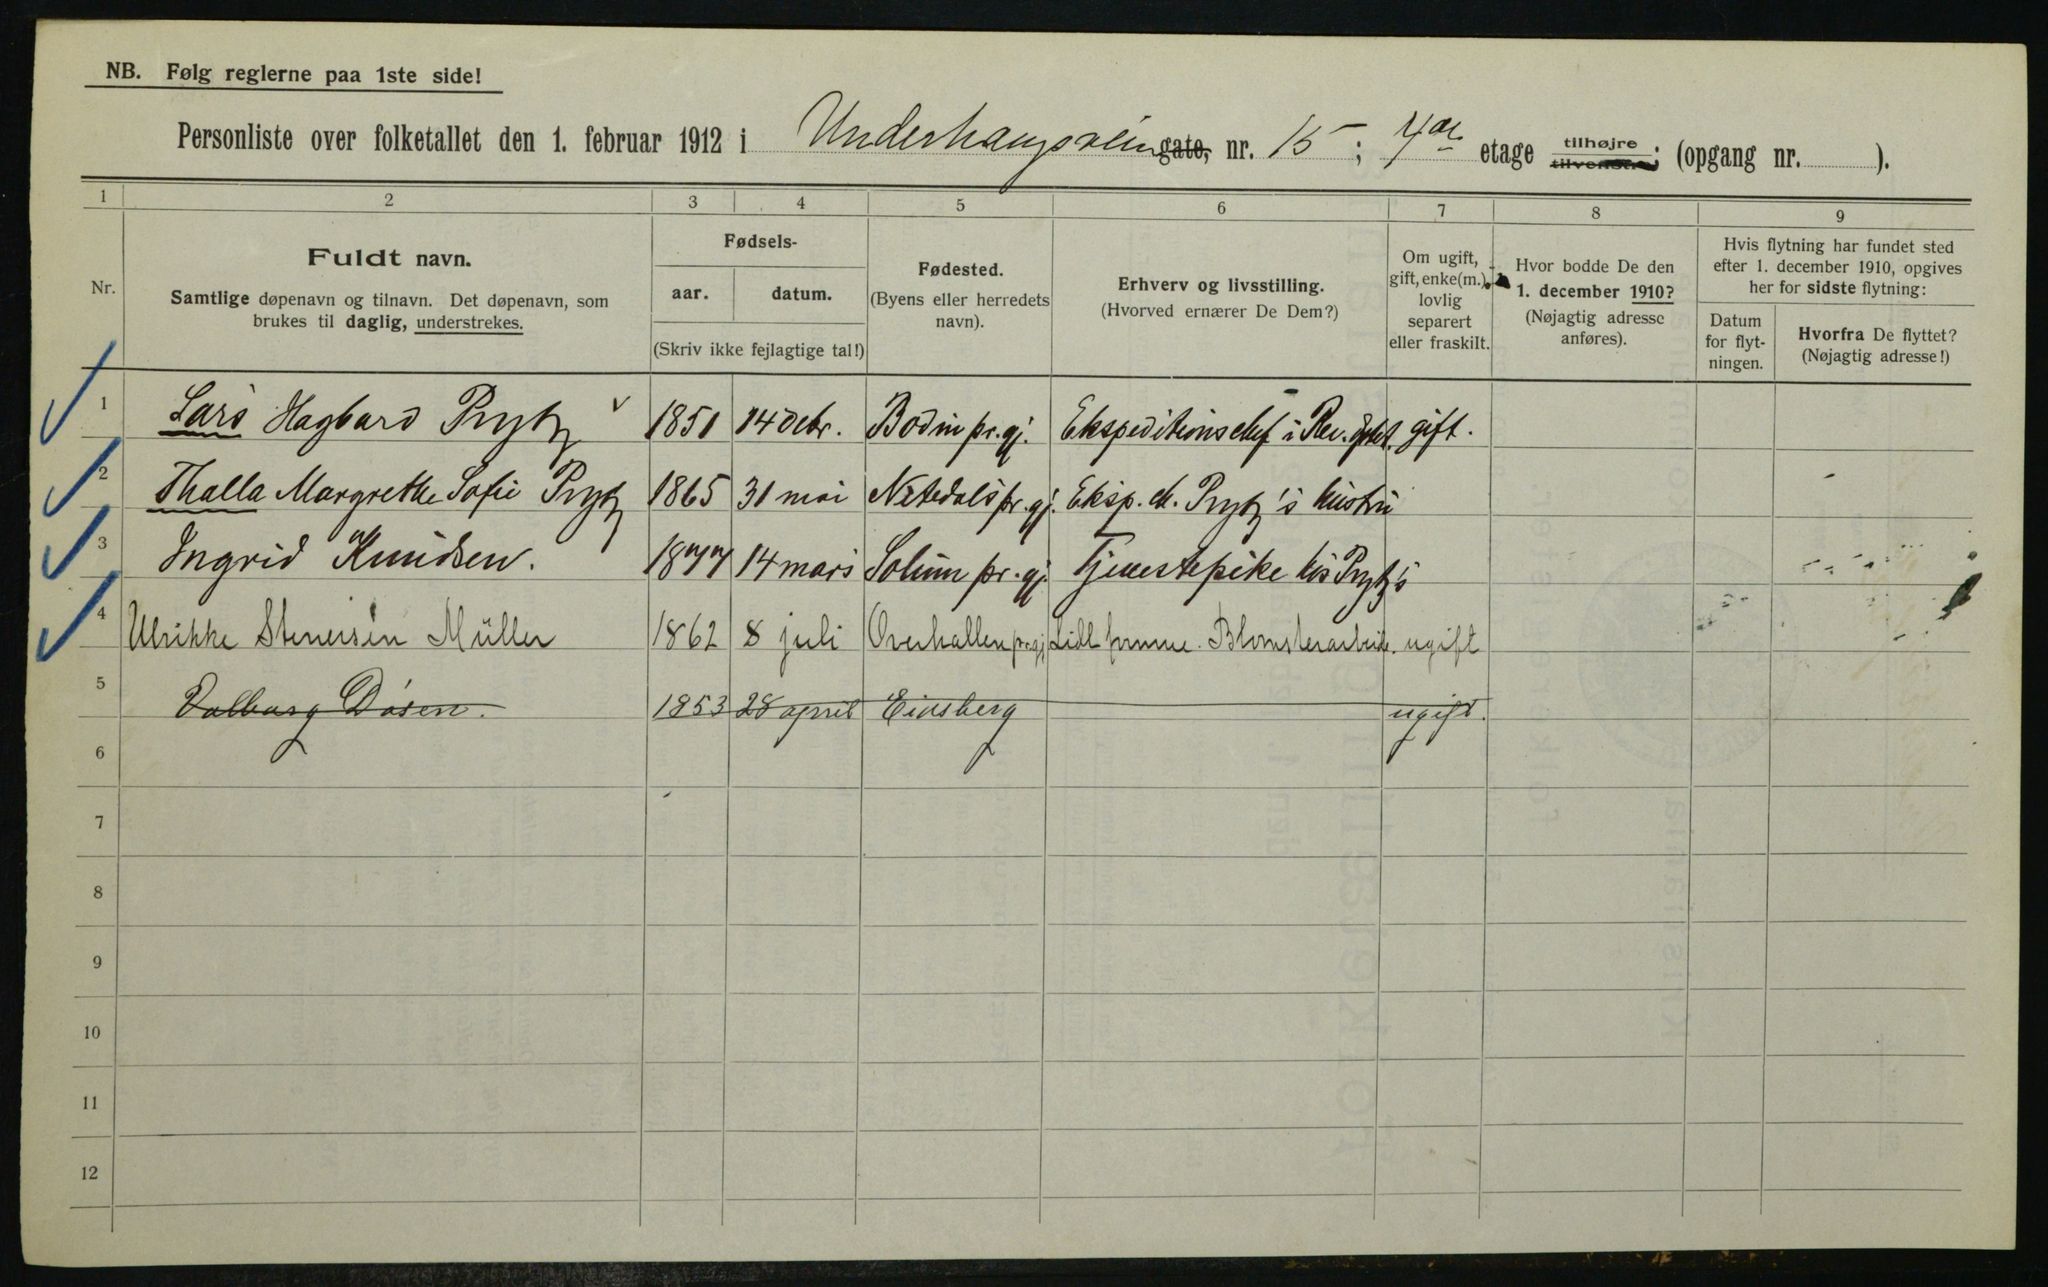 NB. Følg reglerne paa 1ste side!
Personliste over folketallet den 1. februar 1912 i Underhaugsveien gate, nr. 15; 4de etage tilhøjre tilvenstre; (opgang nr. ).
1 2 3 4 5 6 7 8 9
Nr.
Fuldt navn.
Samtlige døpenavn og tilnavn. Det døpenavn, som
brukes til daglig, understrekes.
Fødsels-
aar. datum.
(Skriv ikke fejlagtige tal!)
Fødested.
(Byens eller herredets
navn).
Erhverv og livsstilling.
(Hvorved ernærer De Dem?)
Om ugift,
gift, enke(m.),
lovlig
separert
eller fraskilt.
Hvor bodde De den
1. december 1910?
(Nøjagtig adresse
anføres).
Hvis flytning har fundet sted
efter 1. december 1910, opgives
her for sidste flytning:
Datum
for flyt-
ningen.
Hvorfra De flyttet?
(Nøjagtig adresse!)
1 Lars Hagbard Prytz 1851 14 Ekspeditionschef i Rev. gift.
2 Thalla Margrethe Sofie Prytz 1865 31 mai Nitedals pr.gj. Eksp. ch. Prytz's hustru
3 Ingrid Knudsen. 1877 14 mars Solum pr.gj. Tjenestepike hos Prytz's
4 Ulrikke Stenersen Müller 1862 8 juli Overhallen pr.gj. Lidt formue. Blomsterarbeide. ugift
5 Valborg Døsen. 1853 28 april ugift.
6
7
8
9
10
11
12